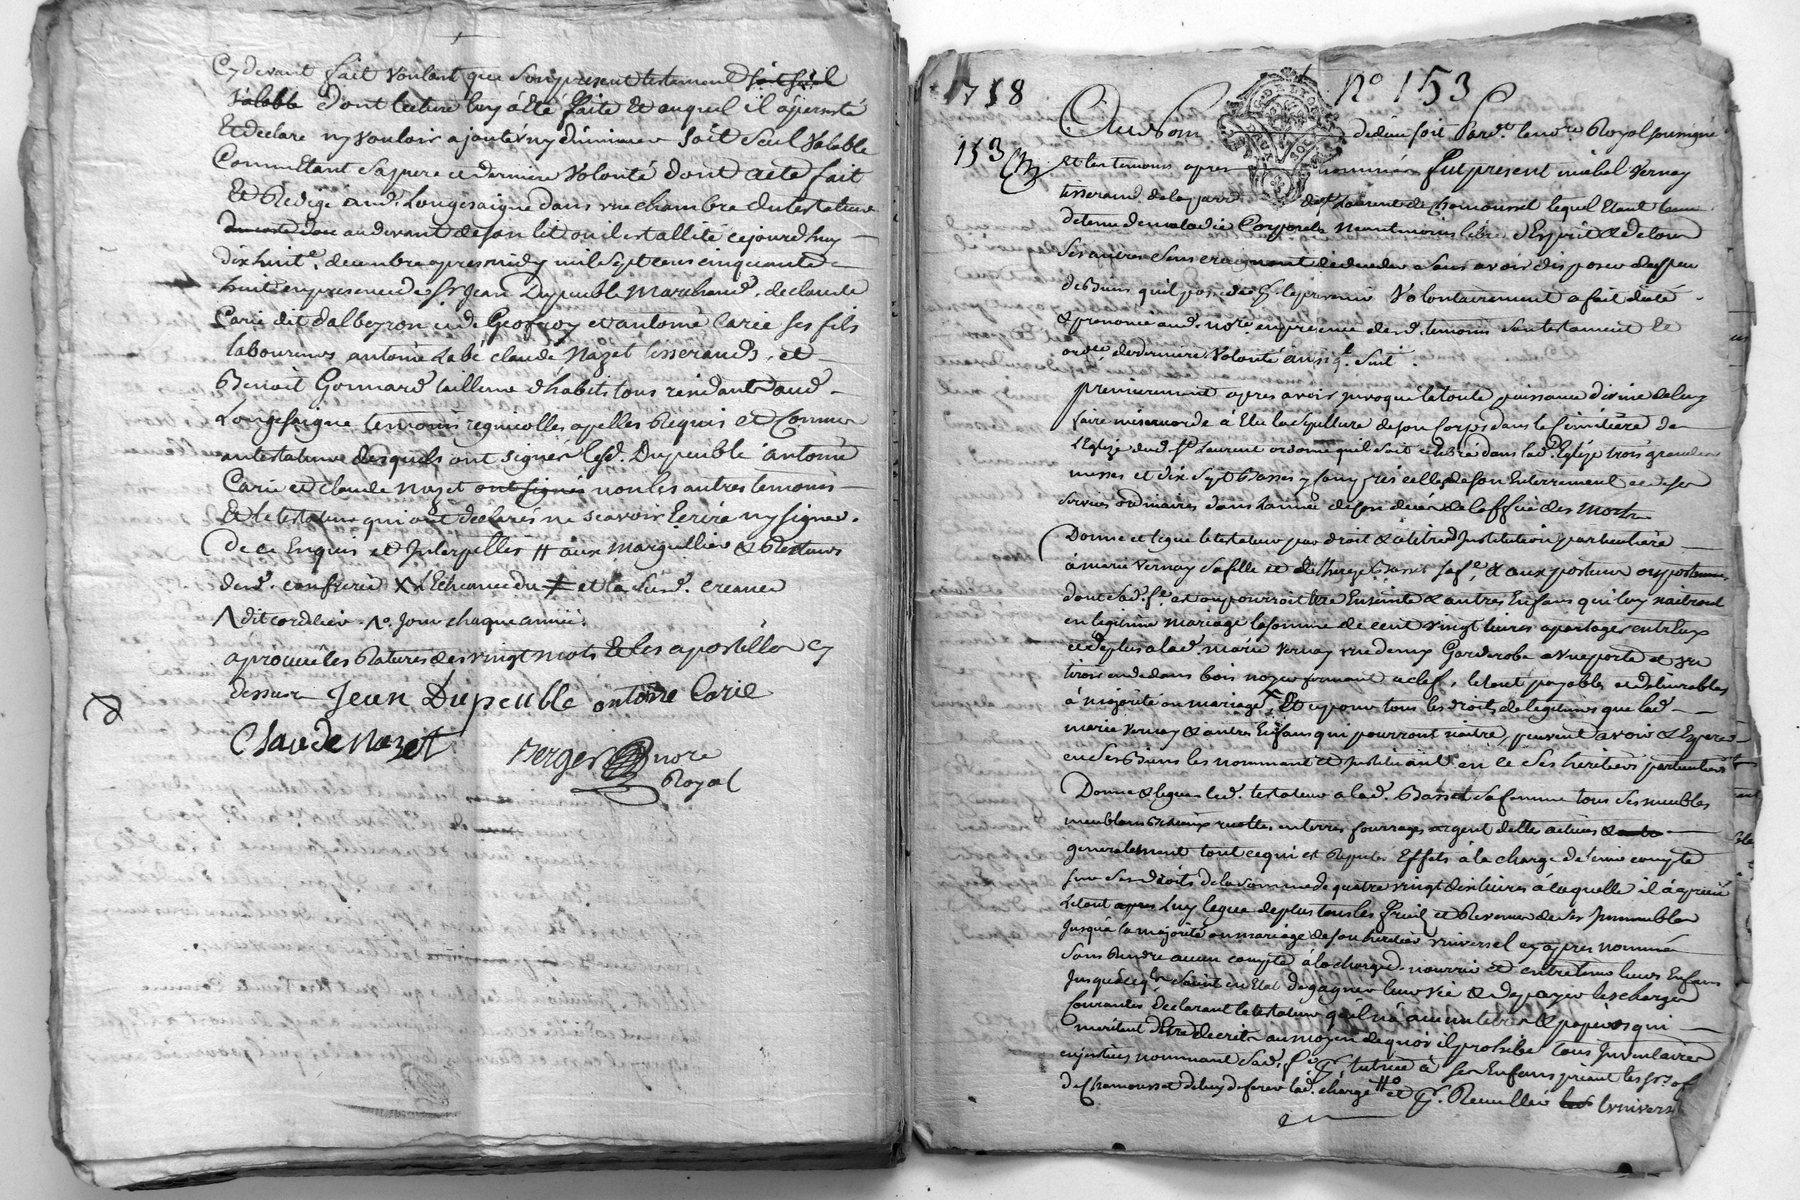 Cydevant fait voulant que son present testament soit seul
valable dont lecture luy a été faitte et auquel il a persisté
et declaré ny vouloir ajouter ny diminuer soit seul valable
Comme étant sa pure et derniere volonté dont acte fait
et Redigé aud. Longesaigne dans une chambre du testateur
au devant de son lit ou il est allité cejourd'huy
dix huit e. decembre apres midy mil sept cens cinquante
huit en presence de Sr Jean Dupeuble Marchand, de claude
Carie dit dalbeyron et antoine Carie ses fils
laboureurs antoine Labé claude Nazet tisserands, et
Benoit Gonnard tailleur d'habits tous residants aud.
Longesaigne temoins regnicolles apellés Requis et Connus
au testateur desquels ont signés lesd. Dupeuble antoine
Carie et claude Nazet ont signés non les autres temoins
et le testateur qui ont declarés ne scavoir Ecrire ny signer.
de ce Enquis et Interpellés # aux marguilliers & Recteurs
de lad. confrerie XX L'Echeance du et la susd. creance
Λ dit cordelier Λo. jour chaque année.
aprouvé les Ratures des vingt mots & les apostilles cy
dessus Jean Dupeuble antoine Carie
Claude Nazet
Berger nore
Royal
1758
N° 153
153
G. DE LYON
Au Nom de dieu soit Pard.t le no.re Royal soussigné
et les temoins apres nommés fut present michel Vernay
tisserand de la par. de St Laurent de Chamousset lequel Etant
detenu de maladie Corporelle Neantmoins libre d'Esprit & de tous
Ses autres Sens craignant de deceder Sans avoir disposé du peu
de Biens quil possede Volontairement a fait dicté
& prononcé aud. no.re en presence desd. temoins Son testament et
ord.ce de derniere Volonté ainsi q. Suit.
premierement apres avoir invoqué la toute puissance divine de luy
faire misericorde a Elu la sepulture de son Corps dans le Cimitière de
L'Eglize dud. St Laurent ordonne quil soit celebré dans lad. Eglize trois grandes
messes et dix Sept Basses y compris celles de son Enterrement et de ses
Services ordinaires dans L'année de son decès de l'office des morts
Donne et legue le testateur par droit & titre d'Institution particuliere
à marie Vernay Sa fille et de Basset sa fe. & aux posthume ou posthumes
dont Sad. fe. est ou pourroit Etre Enceinte & autres Enfans qui luy naitront
en legitime mariage la somme de cent vingt livres a partager entr'Eux
et de plus a lad. marie Vernay une Garderobe a une porte et un
tiroir en dedans bois noyer fermant a clef, le tout payables et delivrables
à majorité ou mariage, Et ce pour tous les droits de legitimes que lad.
marie Vernay & autres Enfans qui pourront naitre peuvent avoir & Esperer
en Ses Biens les nommant et Instituant en ce Ses heritiers particuliers
Donne & legue led. testateur a lad. Basset Sa femme tous Ses meubles
meublans Bestiaux recoltes en terres fourrages argent dettes actives &
generalement tout ce qui est Reputé Effets à la charge de tenir compte
sur Ses droits de la Somme de quatre vingt dix livres à laquelle il a aprecié
le tout apres luy legue de plus tous les fruits et Revenus de Ses Immeubles
Jusqu'à la majorité ou mariage de son heritier Universel cy apres nommé
Sans Rendre aucun compte à la charge de nourrir et entretenir leurs Enfans
Jusqu'à ce q. Soient en Etat de gagner leur vie & de payer les charges
Courantes declarant le testateur qu'il n'a aucun titres & papiers qui
meritent d'Etre decrits au moyen de quoi il prohibe tous Inventaires
enjustice nommant Sad. fe. tutrice à Ses Enfans priant les Srs of
de Chamousset de luy deferer lad. charge et Receuillir Univers